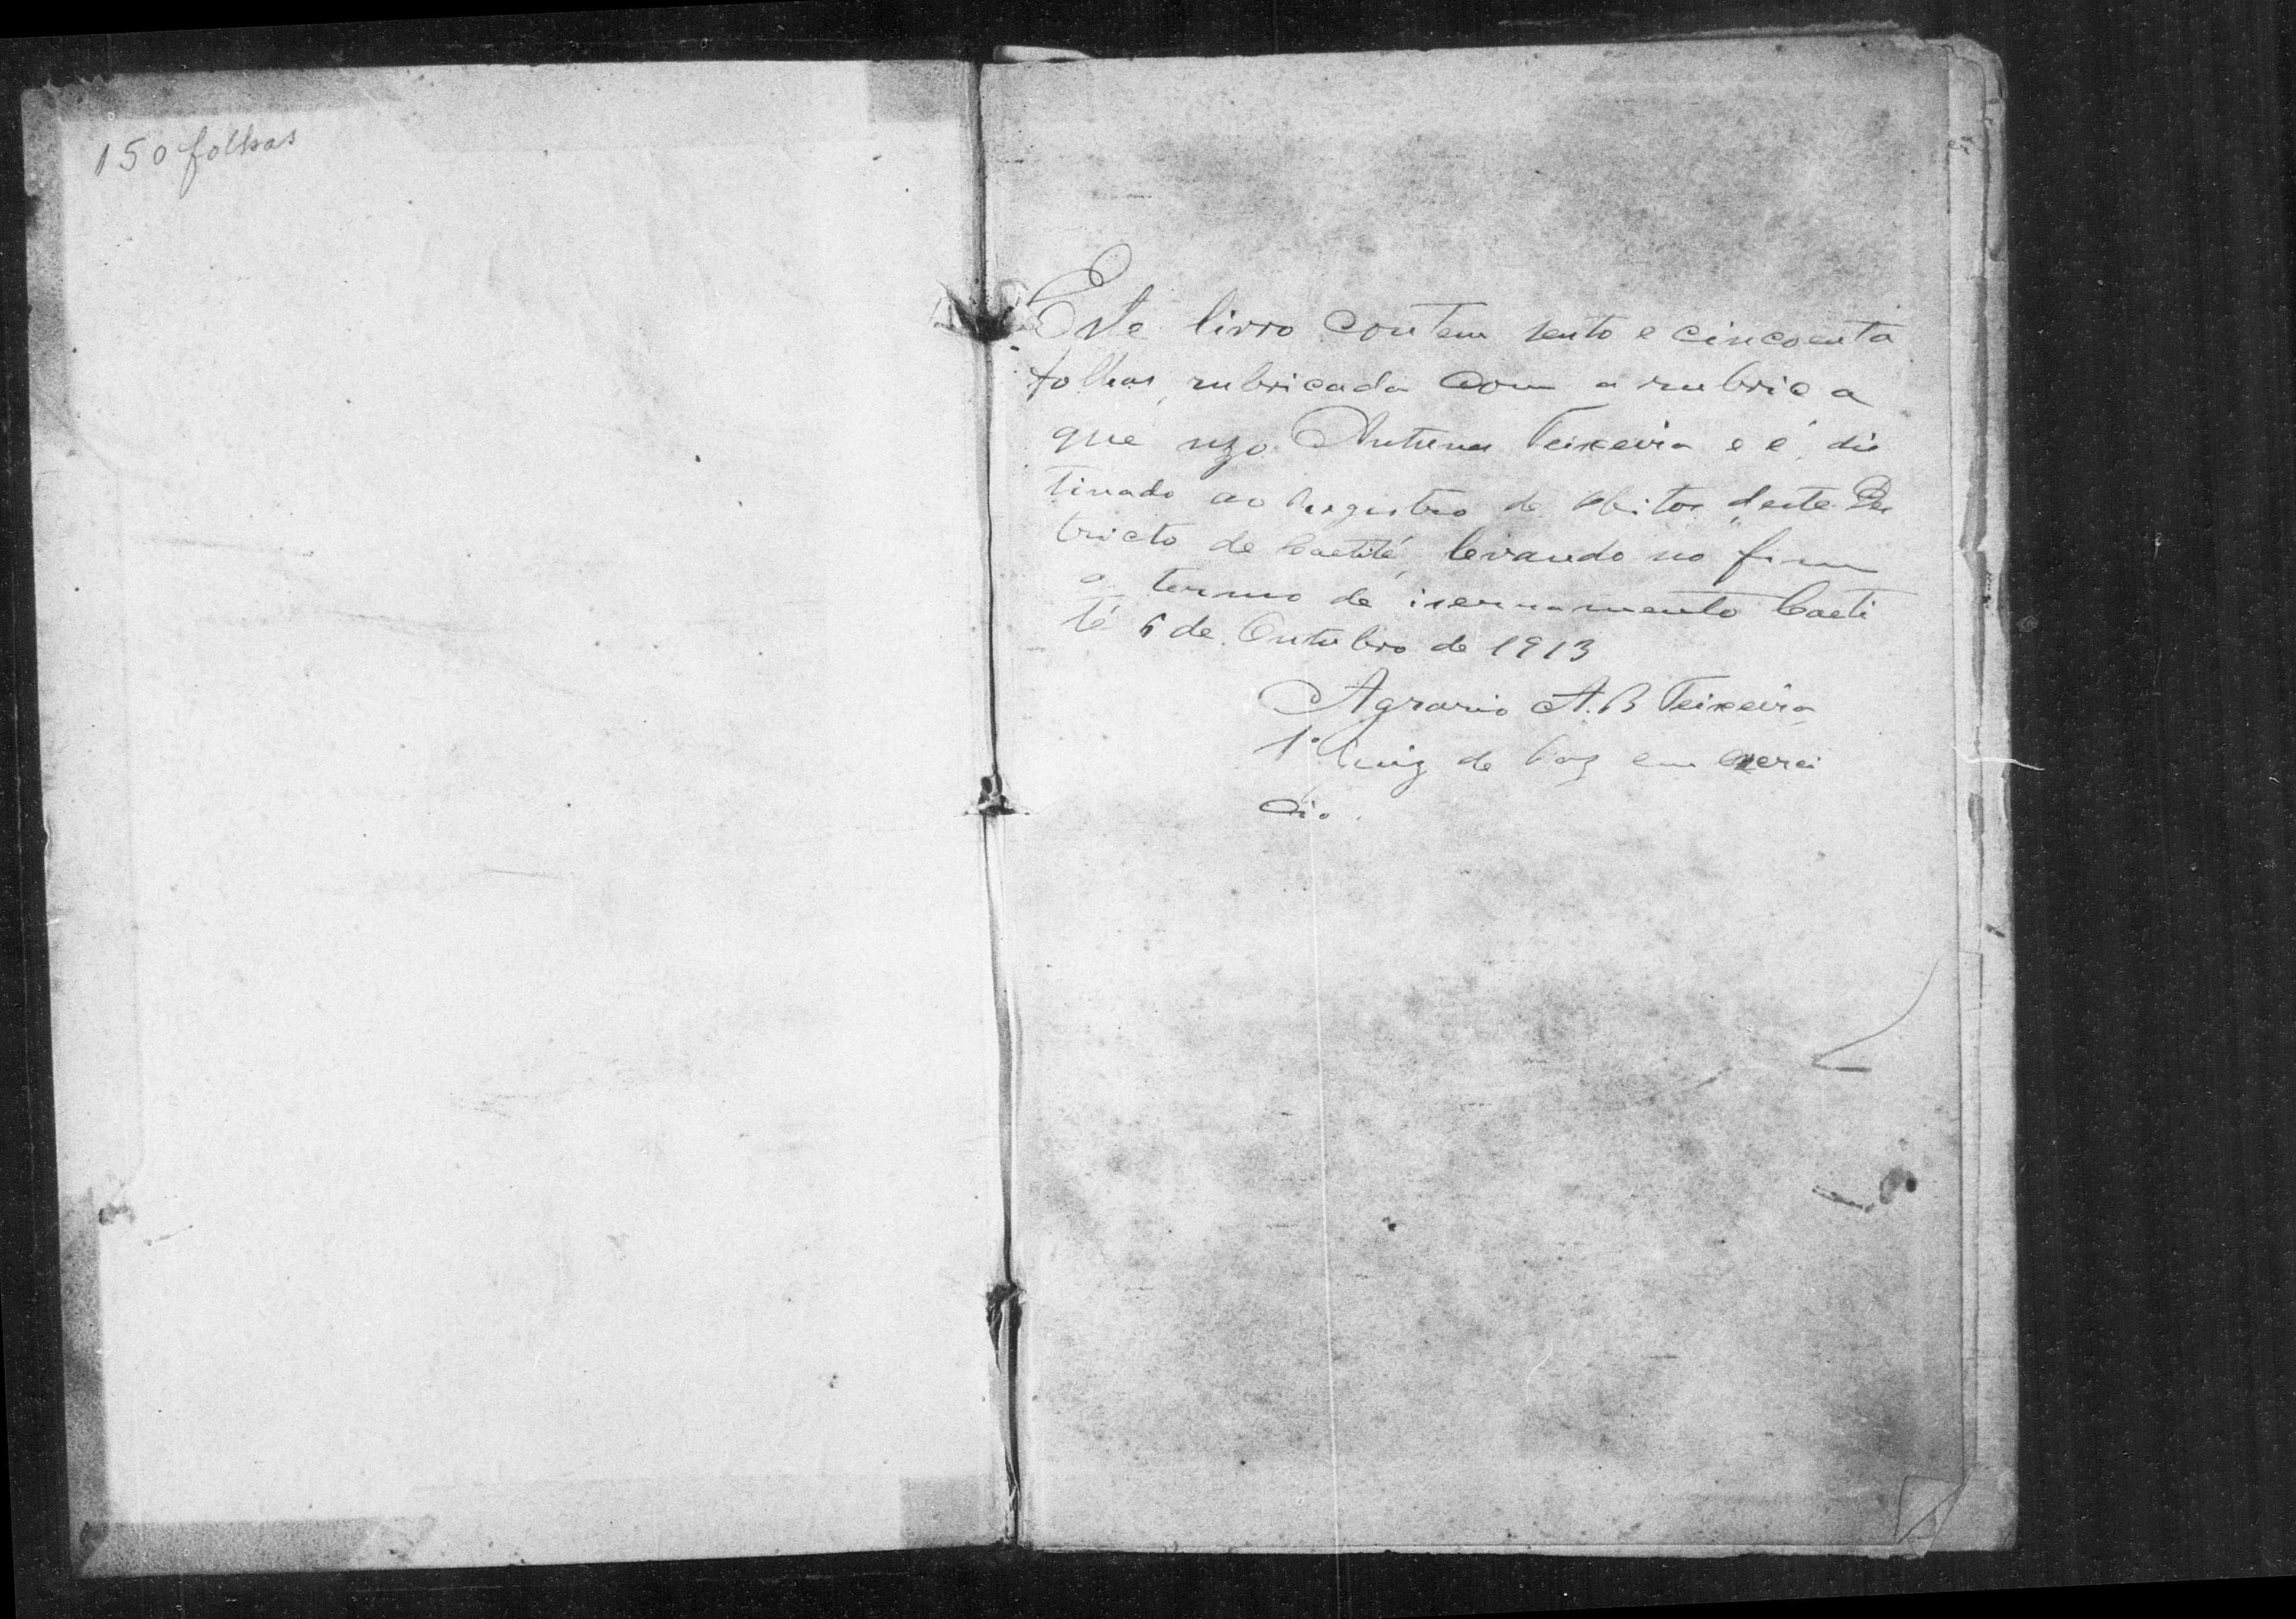 150 folhas
Este livro contem sento e cincoenta
folhas, rubricada com a rubrica
que uzo Antunes Teixeira e é, dis
tinado ao Registro de Obitos deste Des
tricto de Caetité, levando no fim
o termo de iserramento Caeti
té 6 de Outubro de 1913
Agrario A. B Teixeira
1º Juiz de Paz em exerci
cio.